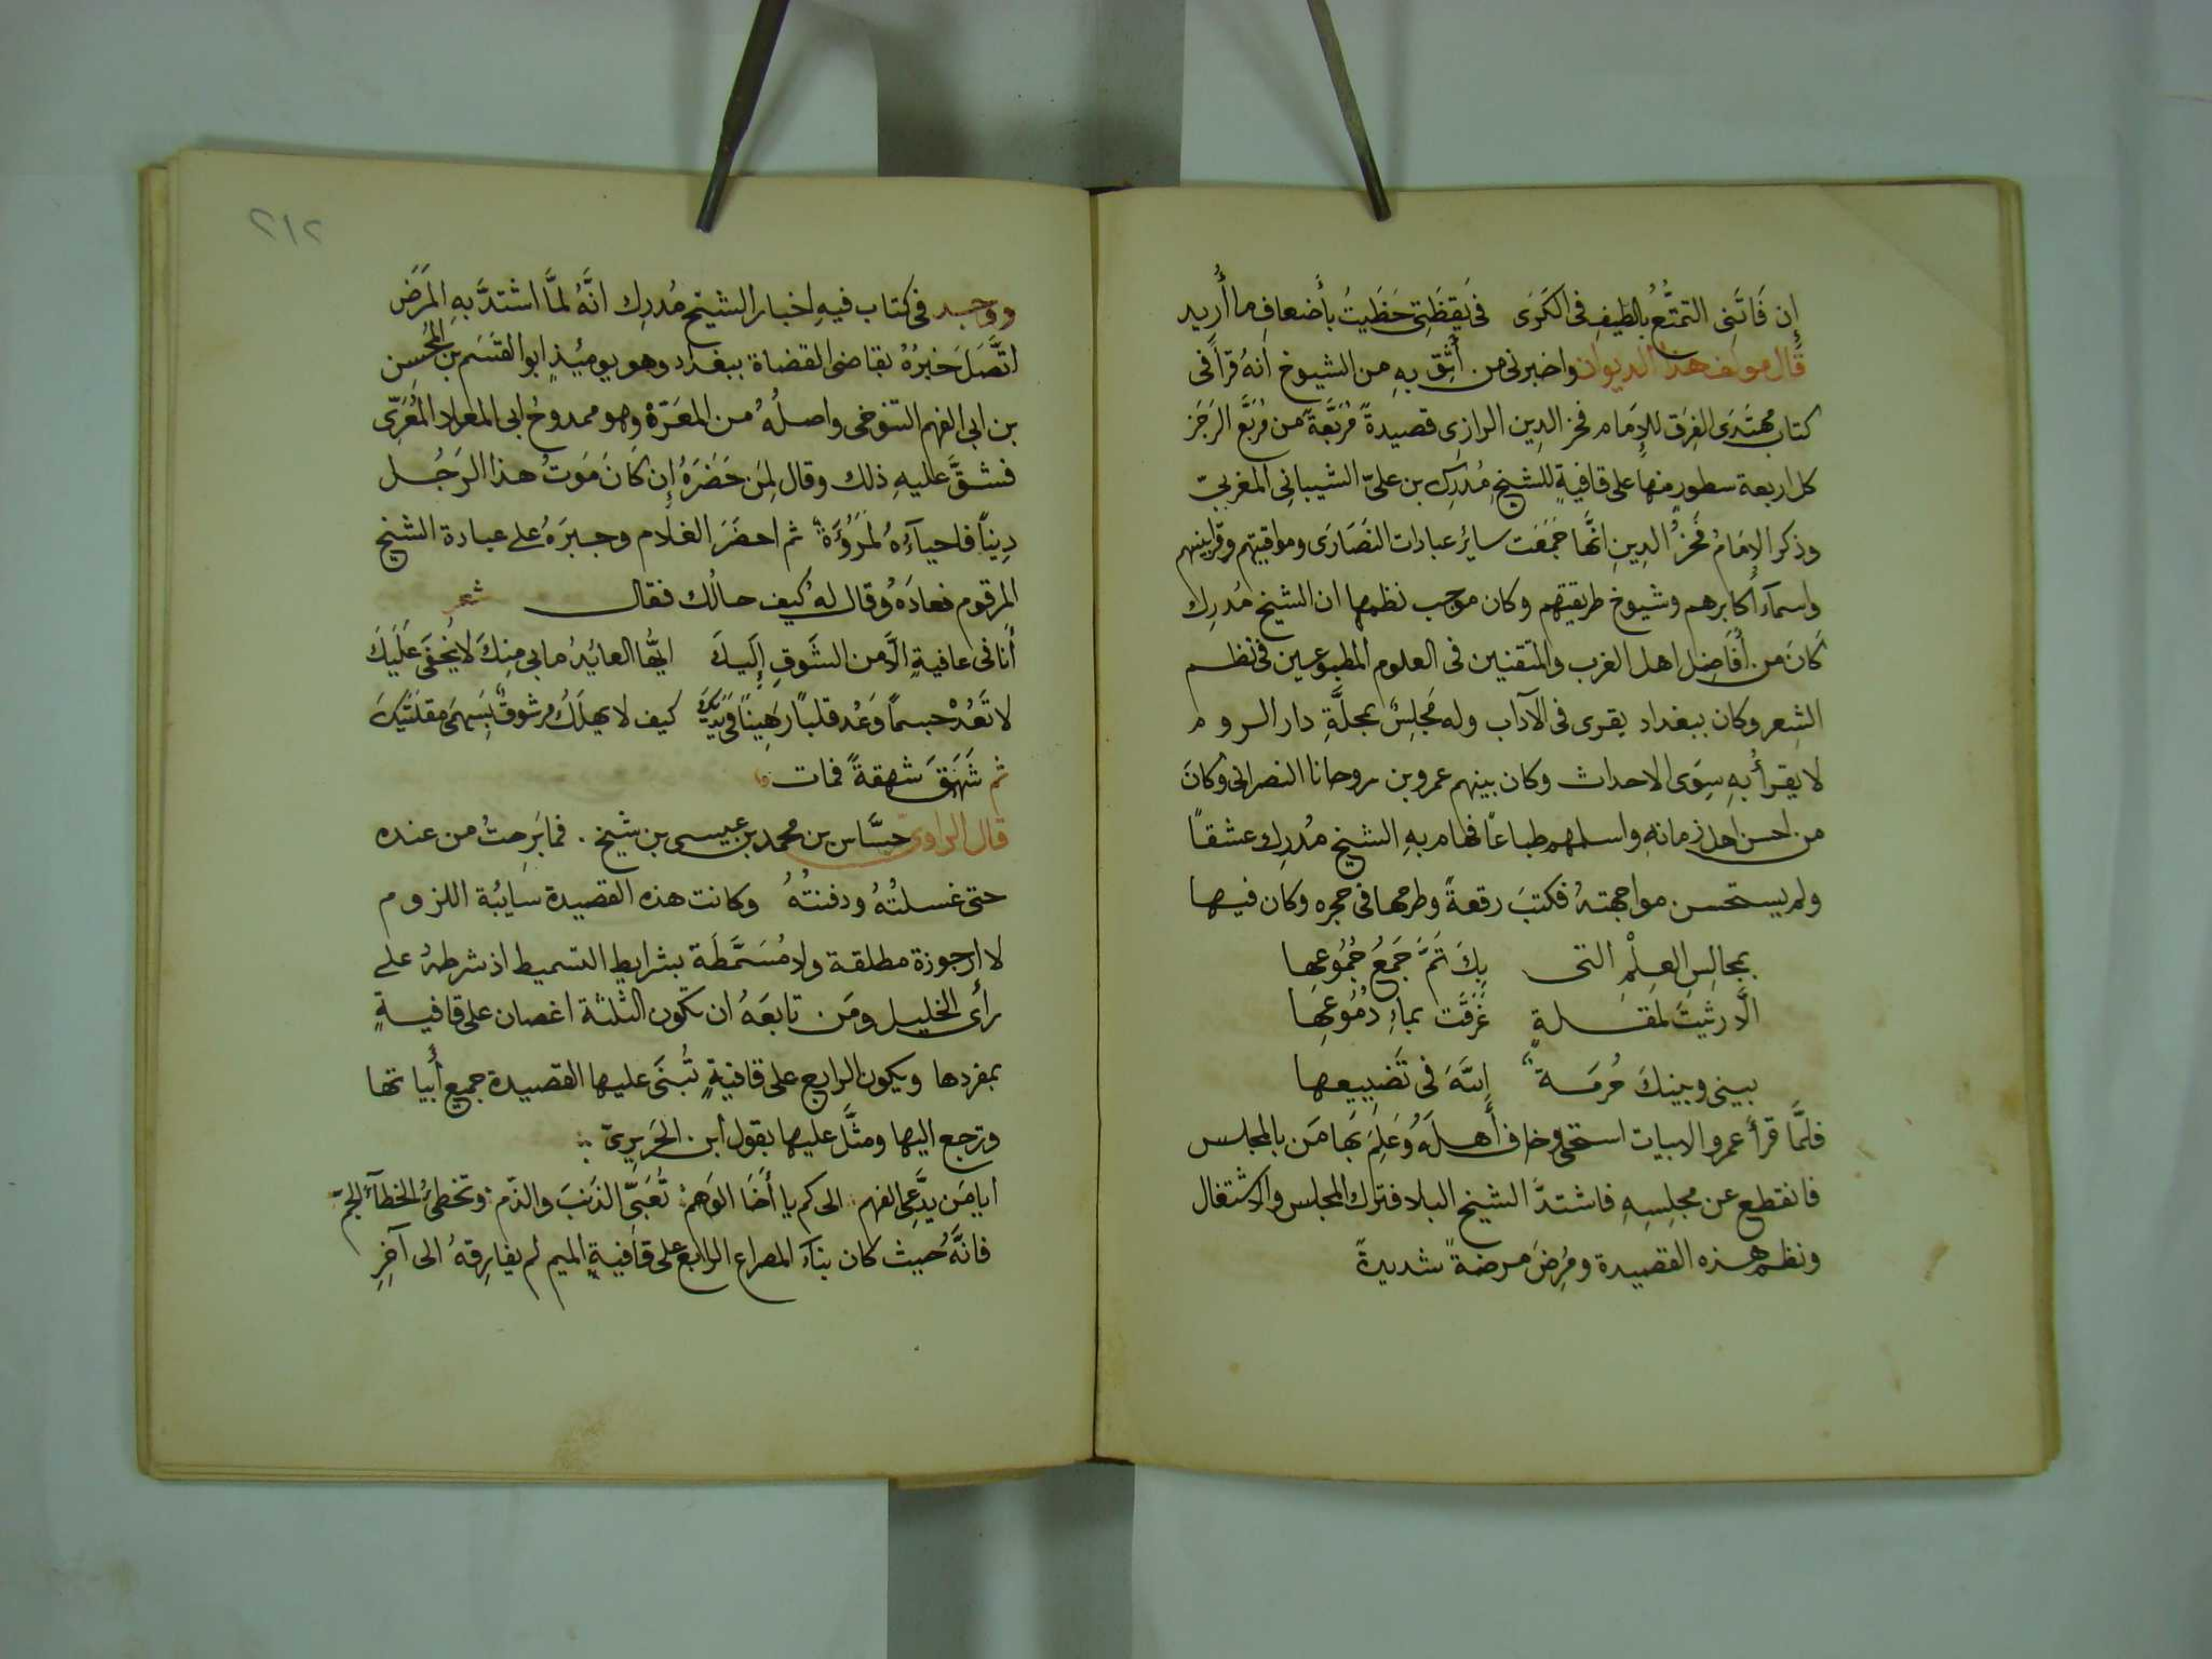 إن فَاتَنِى التمتُّعُ بالطيفِ فى الكَرَى فى يَقِظَتِى حَظَيتُ بأضعافِ ما أُرِيد
قال مولف هذا الديوان واخبرنى من أثِق بهِ من الشيوخ أنهُ قرأ فى
كتاب مهتدى الفِرَق للإمَام فخر الدِين الرازِى قصيدةً مُرَبَّعةً من مُرَبَّع الرَجَز
كل اربعة سطورٍ منها على قافيةٍ للشيخِ مُدرِك بن علىّ الشيبانِى المغربىّ
وذكر الإمَامُ فخرُ الدِينِ انَّها جَمَعَت سائِر عبادات النَصَارَى ومواقيتهم وقرابينهم
واسمآء أكابرهم وشيوخ طريقتهم وكان موجب نظمها ان الشيخ مُدرِك
كَانَ من أفَاضِل اهل الغرب والمتقنين فى العلوم المطبوعين فى نظم
الشِعر وكان ببغداد يقرى فى الآداب وله مَجلِسٌ بمحلَّةِ دار الروم
لا يقرأُ بهِ سِوَى الاحداث وكان بينهم عمرو بن روحانا النصرانى وكانَ
من احسن اهل زمانهِ واسلمهم طباعًا فهام بهِ الشيخ مُدرِك عشقاً
ولم يستحسن مواجهتهُ فكتبَ رقعةً وطرحها فى حجره وكان فيها
بمجالِسِ العِلْمِ التى بِكَ تَمَّ جَمعُ جُمُوعِها
الَّا رثيتَ لمقلةٍ غَرَقَت بماءِ دُمُوعِها
بينى وبينكَ حُرمَةٌ اللهَ فى تَضييعها
فلمَّا قرأ عمرو الابيات استحى وخاف أَهلَهُ وَعَلِمَ بهَا مَن بالمجلس
فانقطع عن مجلِسِهِ فاشتدَّ الشيخ البلا فترك المجلس والاشتغال
ونظم هذه القصيدة ومُرِضَ مرضةً شديدةً
٢١٢
ووجد فى كتاب فيهِ اخبار الشيخ مُدرِك انَّهُ لمَّا اشتدَّ بهِ المَرَض
اتَّصَلَ خبرُهُ بقاضى القضاة ببغداد وهو يوميُذٍ ابو القسَم بن المُحسِن
بن ابى الفهم التنوخى واصلُهُ من المعَرّة وهو ممدوحُ ابى العلاء المُعَرِّى
فشقَّ عليهِ ذلك وقال لِمَن حَضَرَهُ إن كَانَ مَوتُ هذا الرَجُل
دِيناً فاحياؤهُ لَمُرُؤَةٌ ثم احضَرَ الغلَام وجبرَهُ على عيادة الشيخ
المرقوم فعادَهُ وقال لهُ كيف حالُك فقال شعر
أنا فى عافيةٍ الَّا من الشَوقِ إلَيكَ ايُّها العائِدُ مابى مِنكَ لا يُخفَى عَلَيكَ
لا تَعُدْ جسماً وَعُد قلباً رَهِيناً فى يَدَيكَ كيف لا يهلَكُ مرشوقٌ بِسَهمَى مقلَتَيكَ
ثم شَهَقَ شهقةً فمات
قال الراوى حسَّاس بن محمد بن عيسى بن شيخ . فما بَرِحتُ من عنده
حتى غسلتُهُ ودفنتُهُ وكانت هذه القصيدة سايُبة اللزوم
لا أرجوزة مطلقة ولا مُسَمَّطَة بشرايط التسميط اذ شرطهُ على
رأى الخليل ومَن تابعَهُ ان تكون الثلثة اغصان على قافيةٍ
بمفردها ويكون الرابع على قافيةٍ تُبنَى عليها القصيدة جميع أبياتها
وترجع اليها ومثَّل عليها بقول ابن الحَرِيرِىّ
ايا مَن يدَّعِى الفهم الى كم يا أخَا الوَهم تُعَبِّى الذَنبَ والذّم وتخطئ الخطآء الجمّ
فانَّهُ حيث كان بناءُ المصراع الرابع على قافيةِ الميم لم يفارِقهُ الى آخِرِ